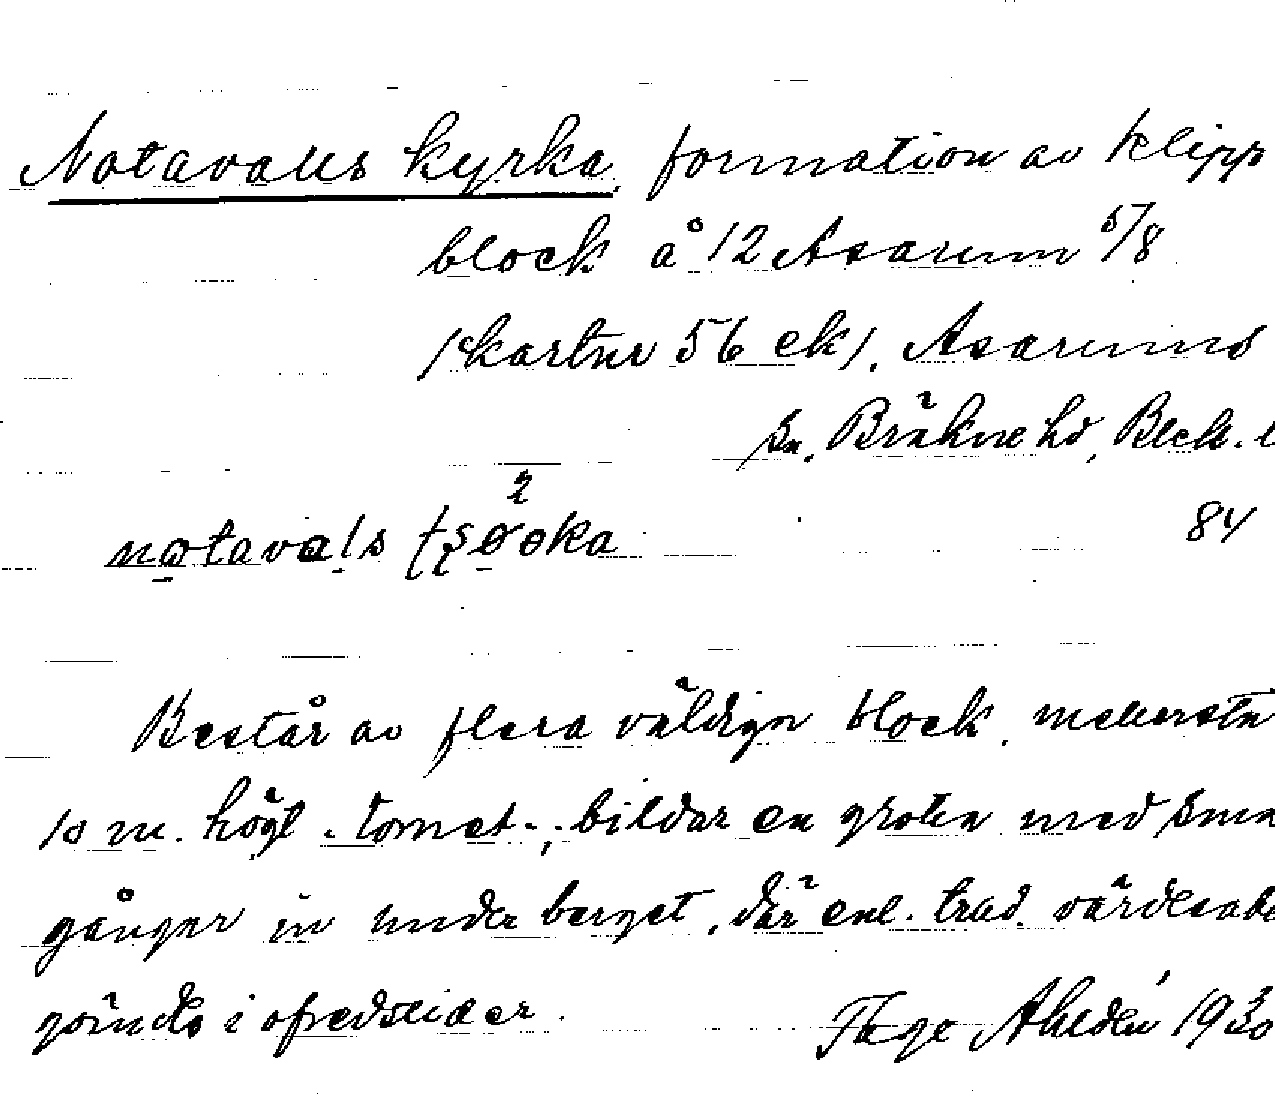 Notavalls kyrka, formation av klipp
block å 12 Asarum 5/8
/kartur 56 ek/. Asarums
sn. Bräkne hd, Blek. l
notavals
84
Består av flera väldiga block, mellersta
10 m. högt "tornet", bildar en grotta med sma
gånger in under berget, där enl. trad. värdesake
gömdes i ofredstider.
Tage Ahldén 1930